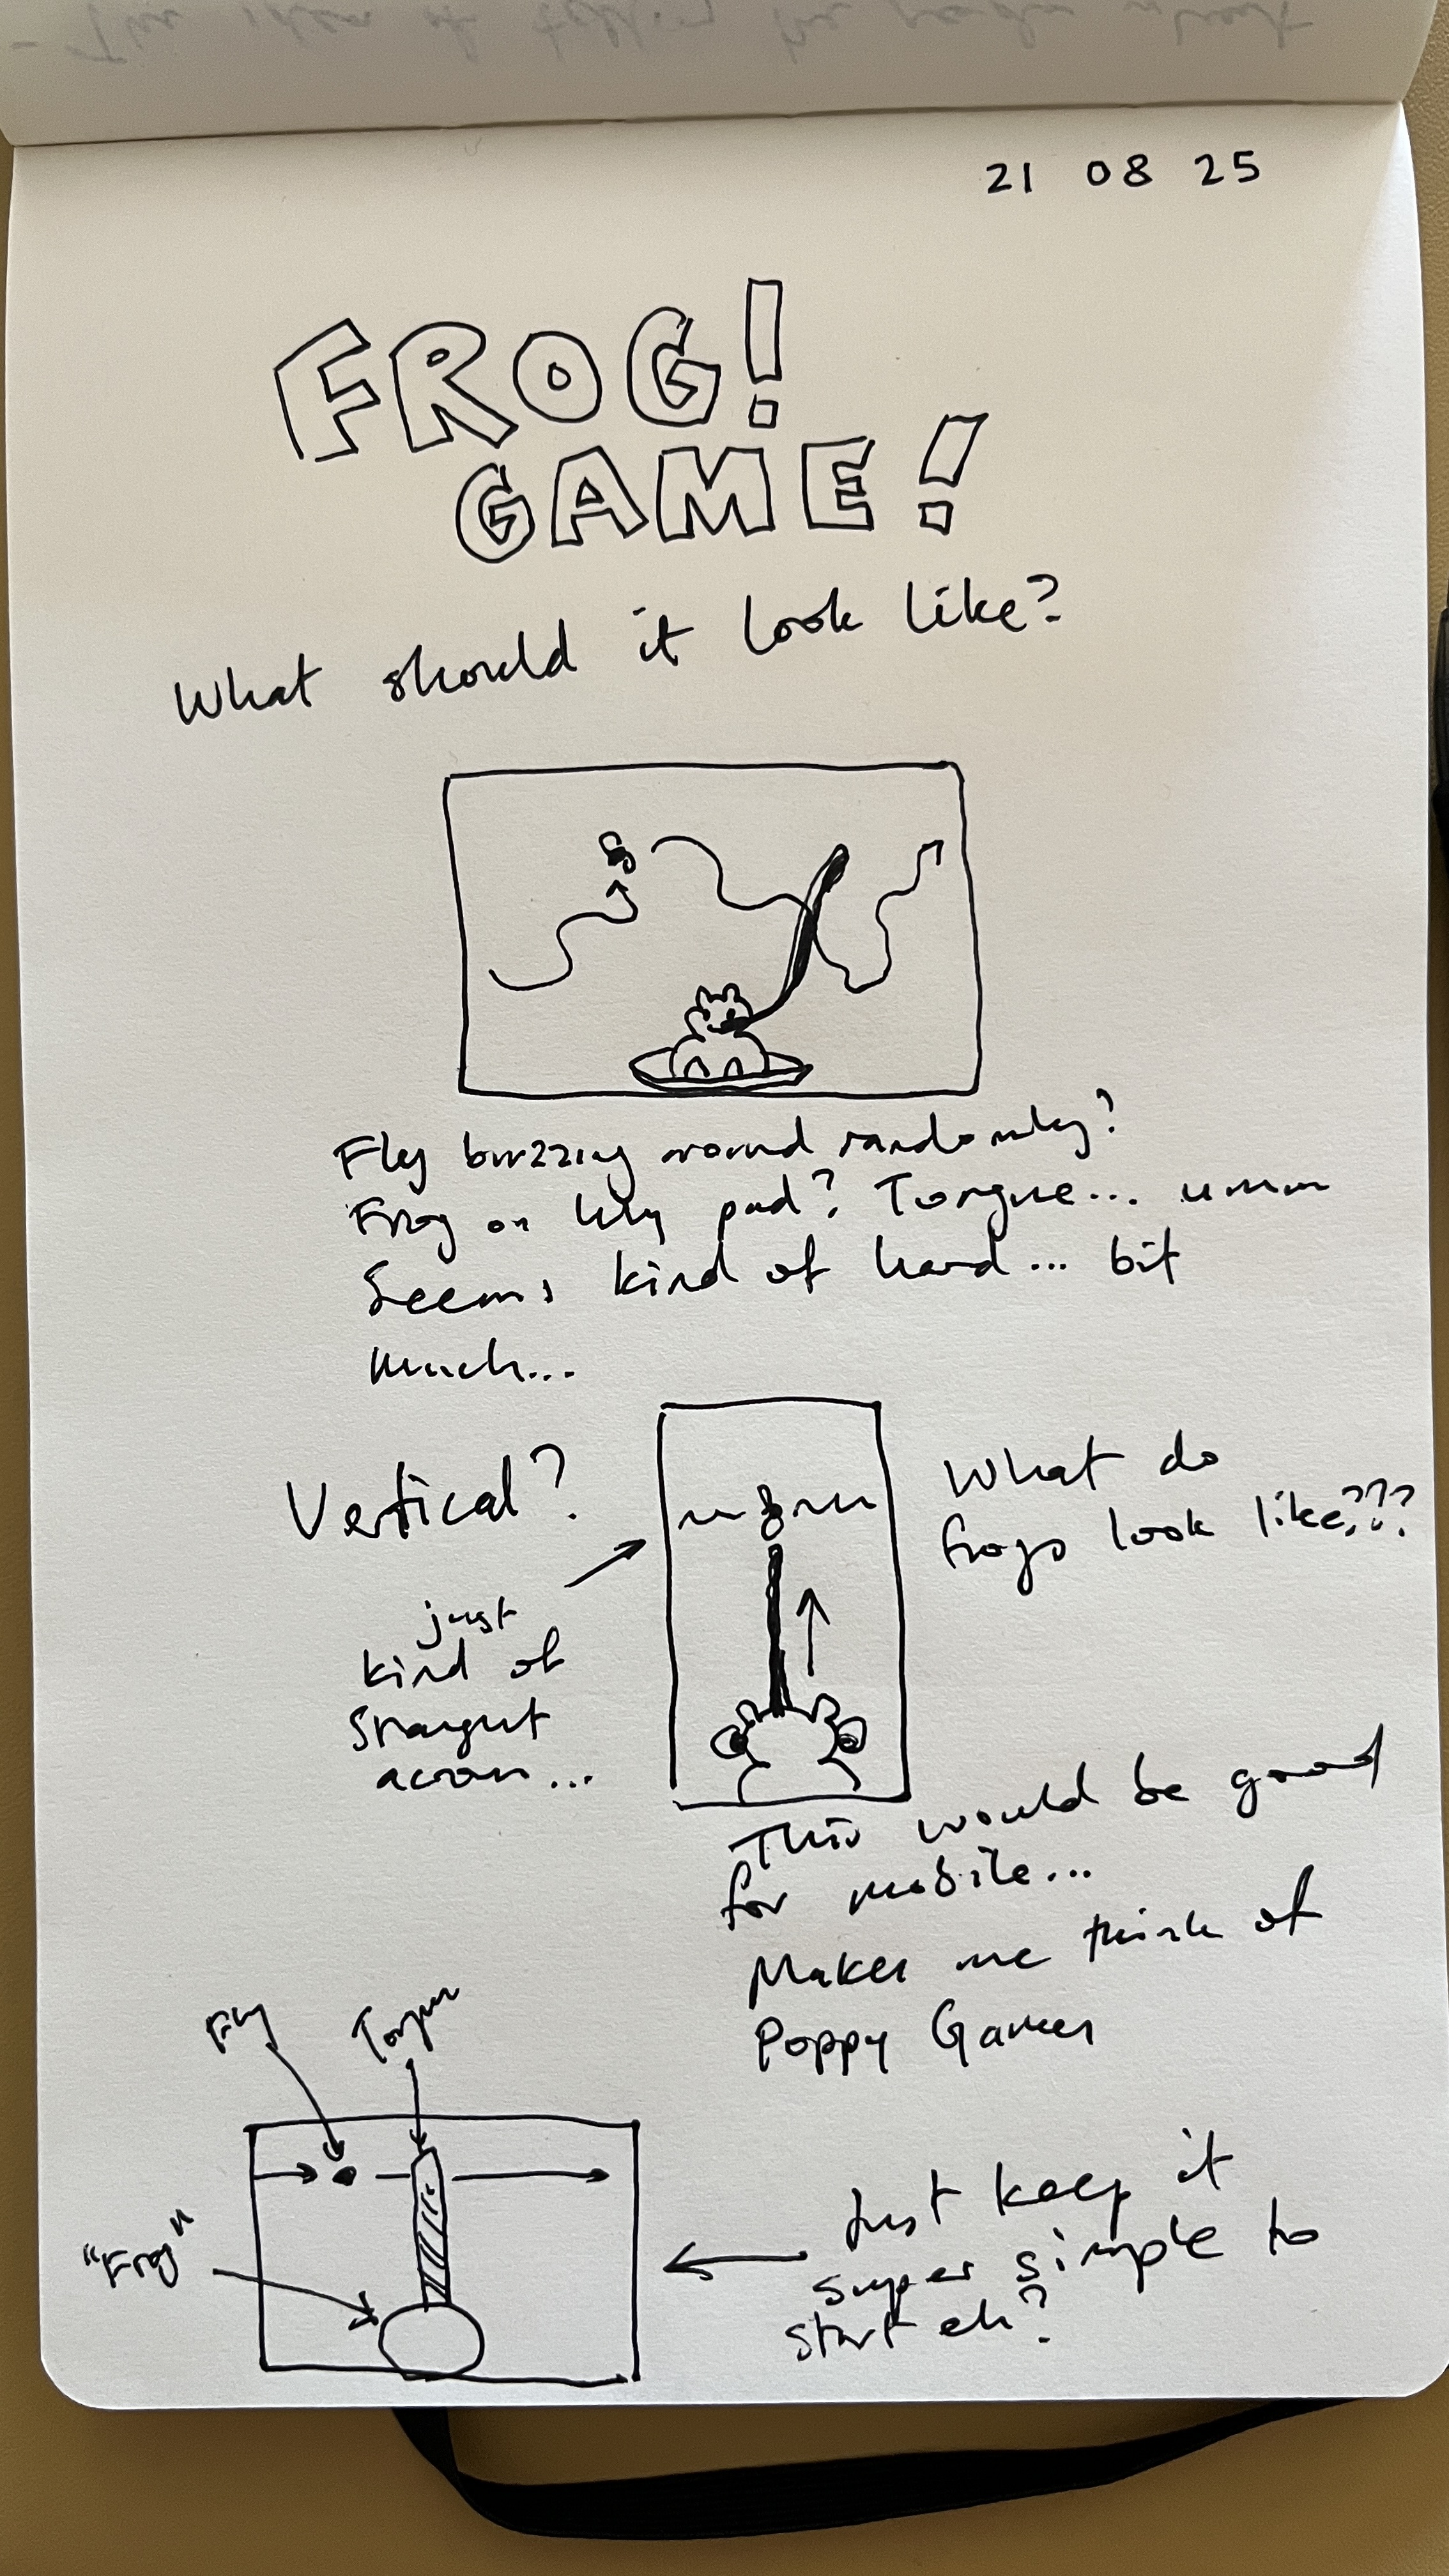 - The idea of telling the reader what
21 08 25
FROG!
GAME!
What should it look like?
Fly buzzing around randomly?
Frog on lily pad? Tongue... umm
Seems kind of hard... bit
much...
Vertical?
just
kind of
straight
across...
What do
frogs look like???
This would be good
for mobile...
Makes me think of
Poppy Games
Fly
Tongue
"Frog"
Just keep it
super simple to
start eh?